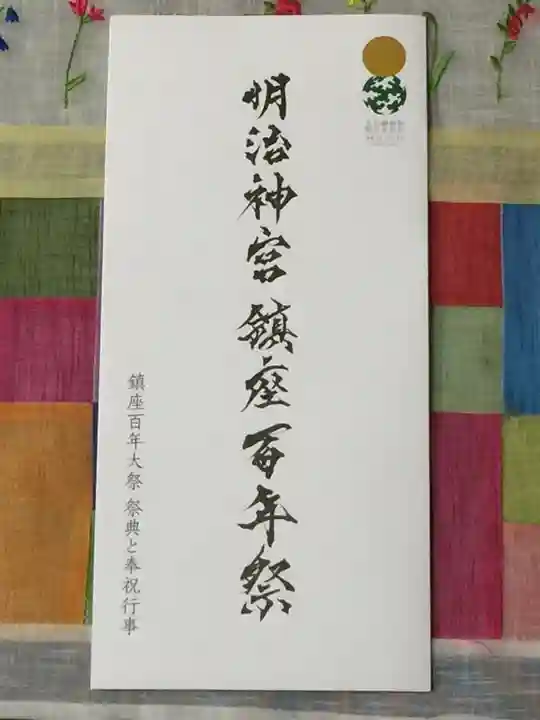 明治神宮 鎮座百年祭
鎮座百年大祭 祭典と奉祝行事